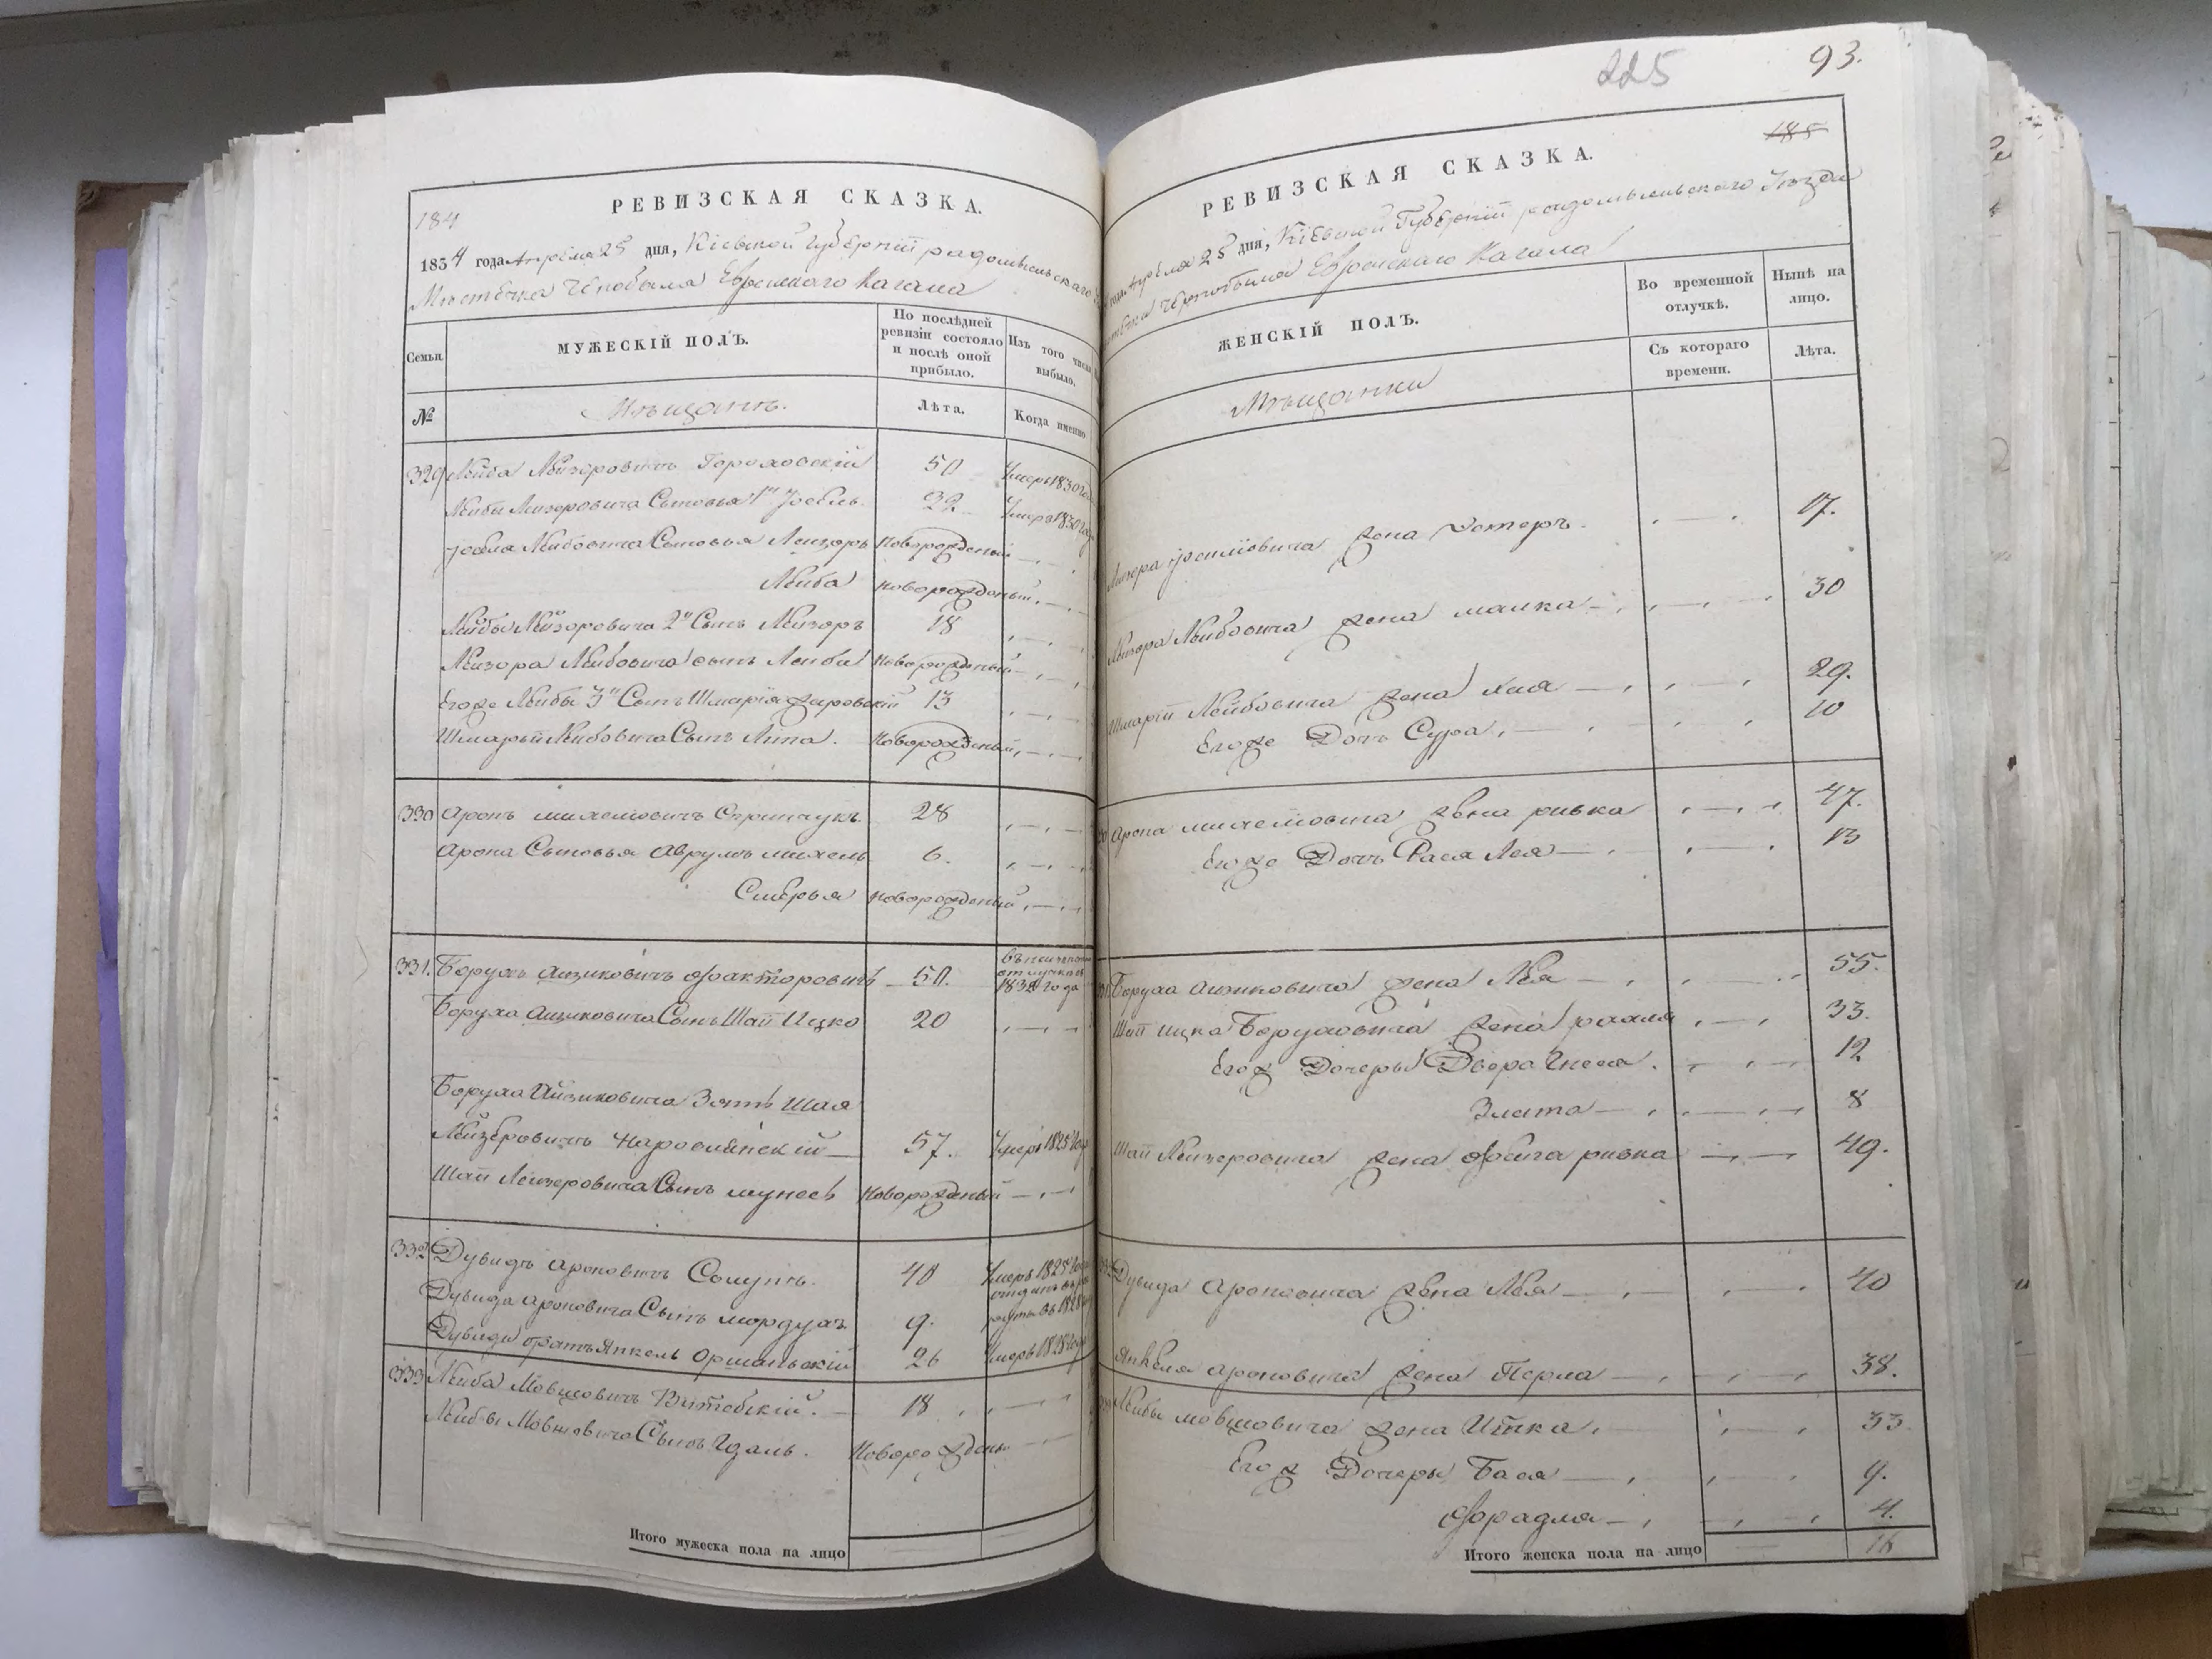 184
РЕВИЗСКАЯ СКАЗКА.
1834 года Апреля 25 дня, Кіевской Губерніи радомысльскаго
Мѣстечка Чернобыля Еврейскаго Кагала
Семьи
МУЖЕСКІЙ ПОЛЪ.
По послѣдней ревизіи состояло и послѣ оной прибыло.
Изъ того числа выбыло.
№
Мѣщанъ.
Лѣта.
Когда именно
329 Лейба Лейзоровичъ Гороховскій 50 Умеръ 1830
Лейбы Лейзоровича Сыновья 1й Іосель 22 Умеръ 1830
Іоселя Лейбовича Сыновья Лейзоръ Новорожденый
Лейба новорожденый
Лейбы Лейзоровича 2й Сынъ Лейзоръ 18
Лейзора Лейбовича сынъ Лейба новорожденый
Егоже Лейбы 3й Сынъ Шмарія 13
Шмарыи Лейбовича Сынъ Липа. Новорожденый
330 Аронъ михелиовичъ 28
Арона Сыновья Аврумъ михель 6.
новорожденый
331. Борухъ Айзиковичъ факторовичъ 50. отлучкѣ 1832 года
Боруха Айзиковича Сынъ Шая Ицко 20
Боруха Айзиковича Зять Шая
Лейзеровичъ Народический 57. Умеръ 1825
Шаи Лейзеровича Сынъ мунесъ Новорожденый
332 Дувидъ Ароновичъ 40 Умеръ 1825
Дувида Ароновича Сынъ мордухъ 9. отданъ въ рекруты въ 1828
Дувида братъ Янкель 26 Умеръ 1828
333 Лейба Мовшовичъ Витебскій. 18
Лейбы Мовшовича Сынъ Гдаль. Новорожден
Итого мужеска пола на лицо
225
93.
185
РЕВИЗСКАЯ СКАЗКА.
года Апреля 25 дня, Кіевской Губерніи радомысльскаго Уѣзда
Чернобыля Еврейскаго Кагала
ЖЕНСКІЙ ПОЛЪ.
Во временной отлучкѣ.
Нынѣ на лицо.
Мѣщанки
Съ котораго времени.
Лѣта.
жена Эстеръ. 17.
Лейзора Лейбовича жена малка 30
Шмарыи Лейбовича жена Хая 29.
Егоже Дочь Сура, 10
Арона михелиовича жена ривка 47.
Егоже Дочь Рася Лея 13
Боруха Айзиковича жена Лея 55.
Шаи Ицка Боруховича жена рахля 33.
Егож Дочеры Двера Гнеся. 12
Злата 8
Шаи Лейзеровича жена фейга ривка 49.
Дувида Ароновича жена Лея 40
Янкеля Ароновича жена Перла 38.
Лейбы мовшовича жена Итка 33.
Егож Дочеры Бася 9.
фрадля 4.
Итого женска пола на лицо 16